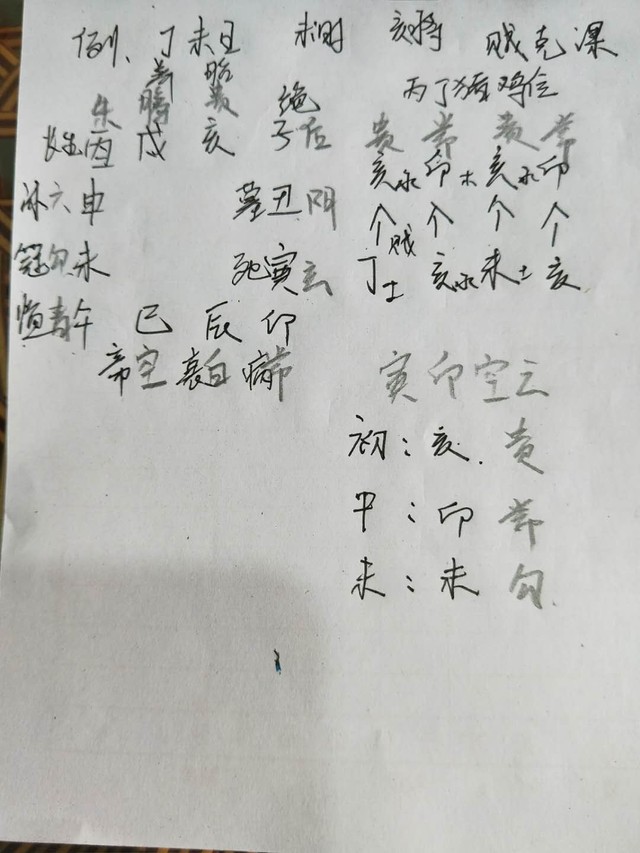 例、丁未日 未时 亥将 贼克课
养 胎
朱 螣 贵 绝 丙丁猪鸡位
长生 酉 戌 亥 子后 贵 常 贵 常
亥水 卯木 亥水 卯
沐六申 墓丑阴 个 个 个 个
贼
冠勾未 死寅玄 丁土 亥水 未土 亥
青午 巳 辰 卯
帝空 衰白 病常 寅卯空亡
初:亥. 贵
中:卯 常
末:未 勾